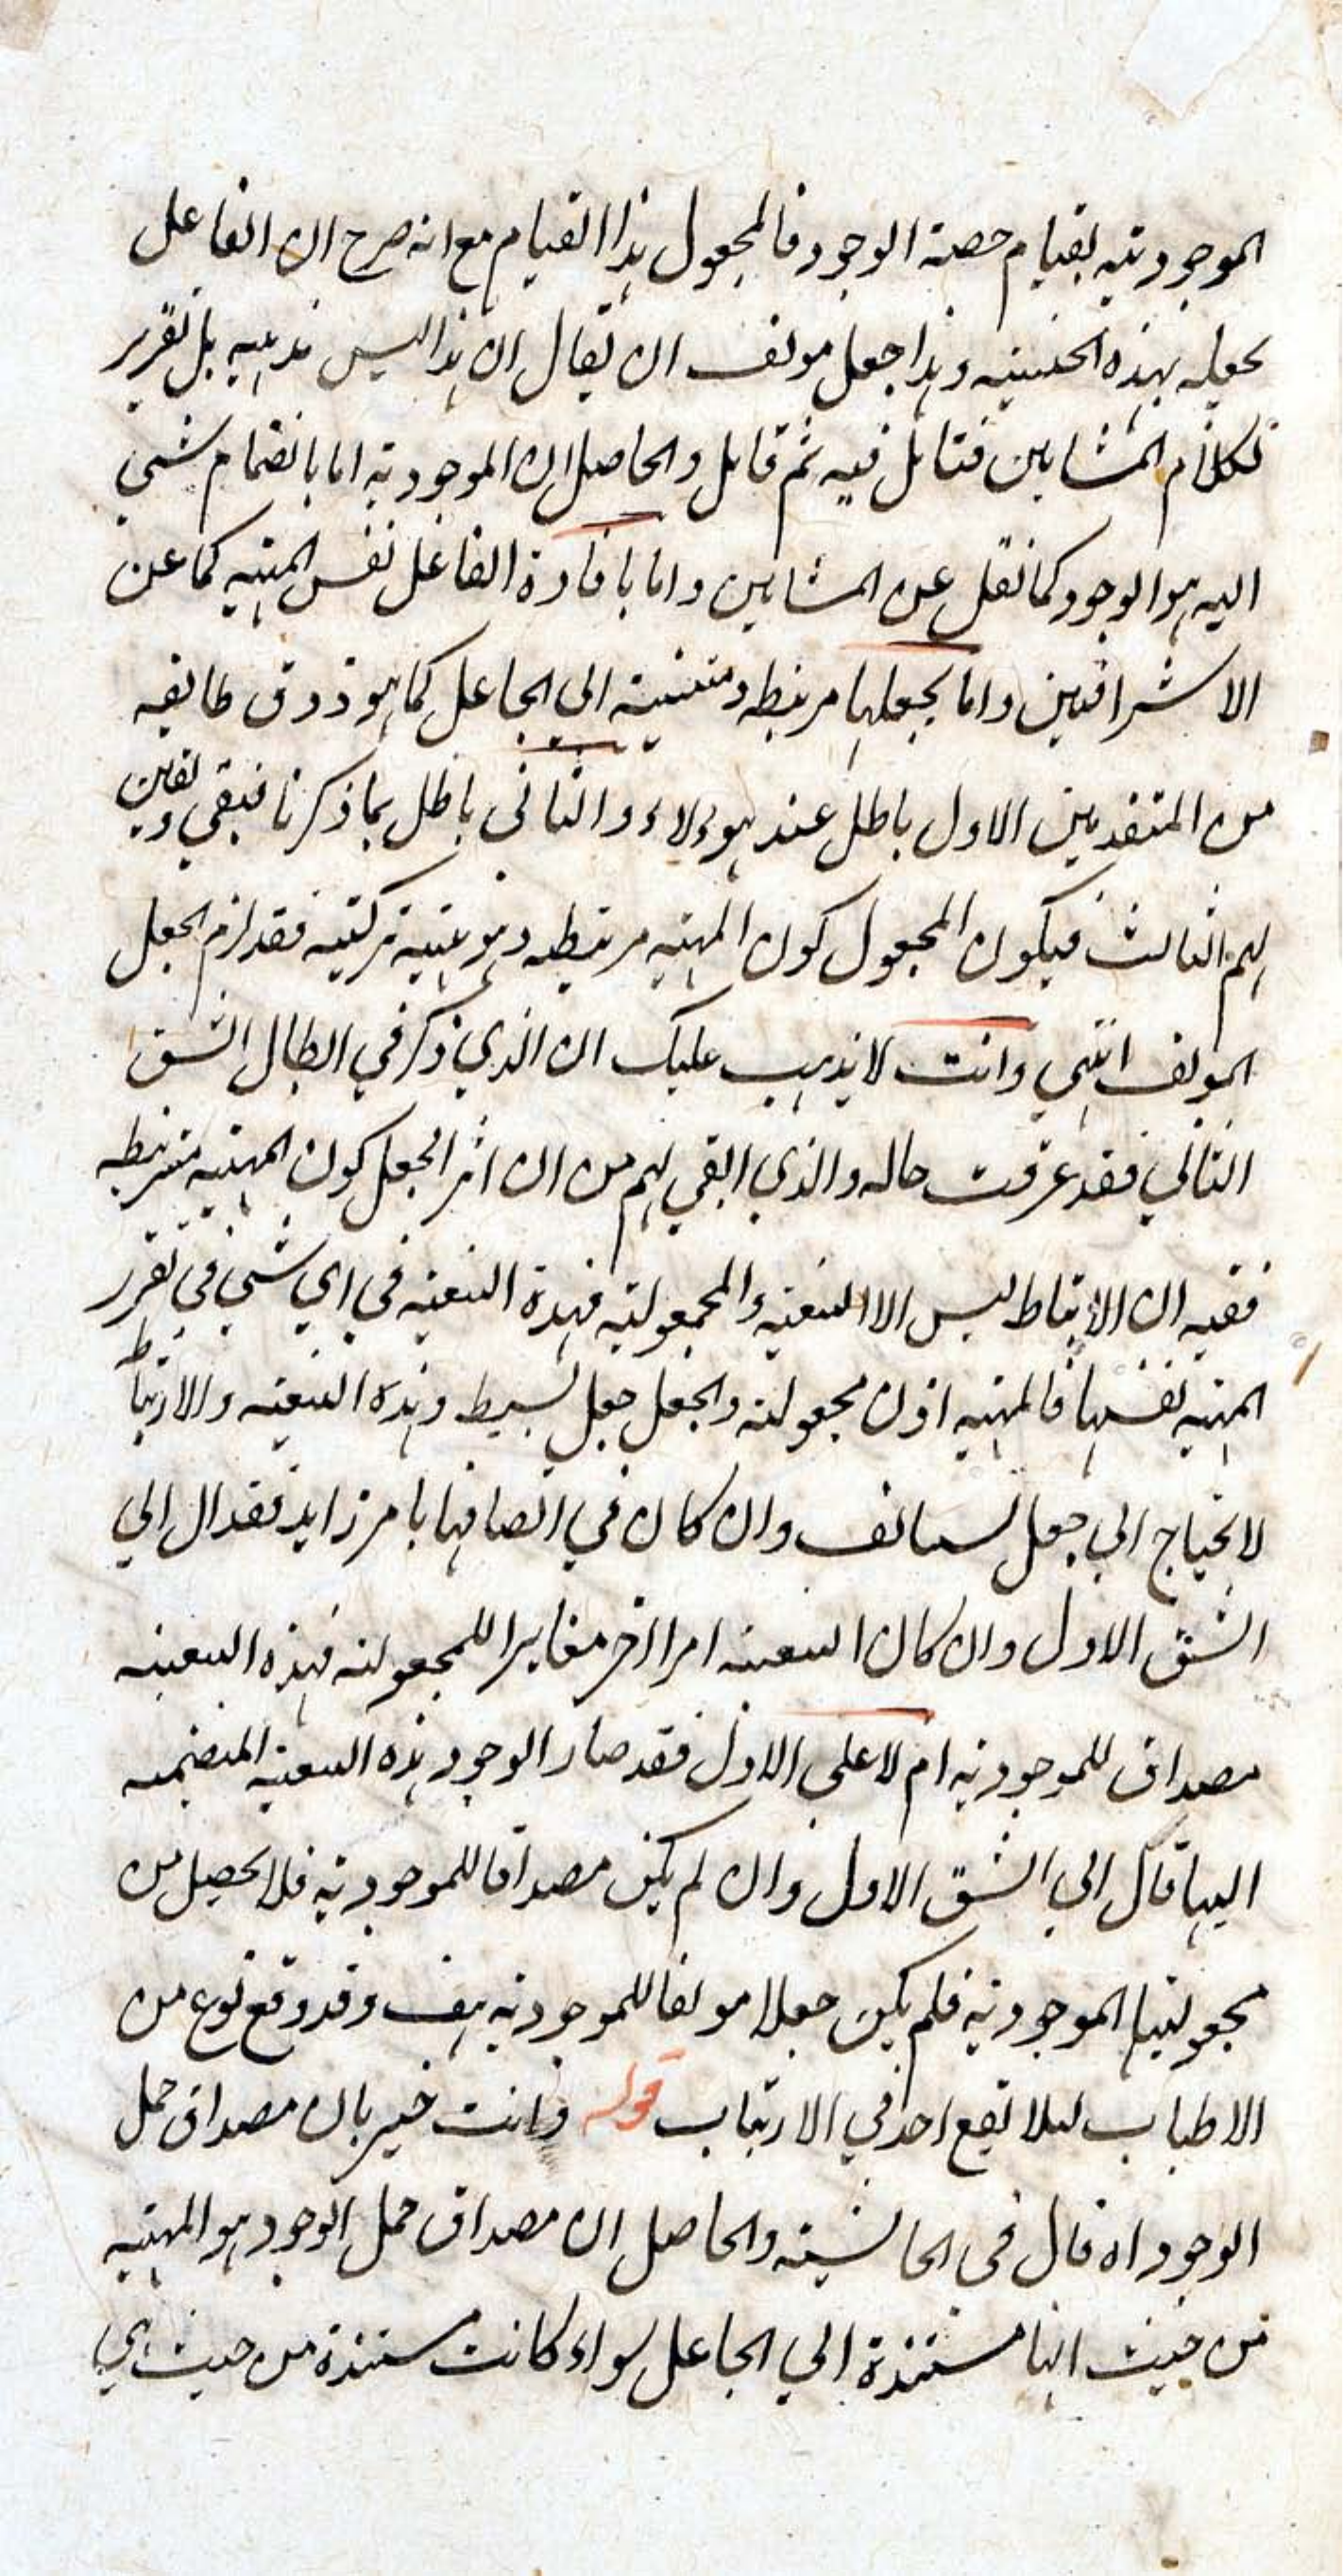 الموجودتيه لقيام حصة الوجود فالمجعول هذا القيام مع انه صرح ان الفاعل
يجعله بهذه الحيثيه وهذا جعل مولف الا ان يقال ان هذا ليس مذهبه بل تقرير
لكلام المشايين فتامل فيه ثم تامل والحاصل ان الموجوديه اما بانضمام شيئ
اليه هو الوجود كما نقل عن المشايين واما بافادة الفاعل نفس المهيه كما عن
الاشراقيين واما بجعلها مرتبطه ومنتسبة الى الجاعل كما هو ذوق طايفه
من المتقدمين الاول باطل عند هولاء والثاني باطل بما ذكرنا فبقي
لهم الثالث فيكون المجعول كون المهيه مرتبطه وهو هيئة تركيبيه فقد لزم الجعل
المولف انتهي وانت لا يذهب عليك ان الذي ذكر في ابطال الشق
الثاني فقد عرفت حاله والذي ابقي لهم من ان اثر الجعل كون المهيه مرتبطه
ففيه ان الارتباط ليس الا التبعيه والمجعوليه فهذه التبعيه في اي شيئ في تقرر
المهيه نفسها فالمهيه اذن مجعوله والجعل جعل بسيط وهذه التبعيه والارتباط
لا يحتاج الي جعل مستانف وان كان في اتصافها بامر زايد فقد ال الي
الشق الاول وان كان التبعيه امرا اخر مغايرا للمجعوليه فهذه التبعيه
مصداق للموجوديه ام لا علي الاول فقد صار الوجود هذه التبعيه المنضمه
اليها فآل الي الشق الاول وان لم يكن مصداقا للموجوديه فلا يحصل من
مجعوليتها الموجوديه فلم يكن جعلا مولفا للموجوديه هف وقد وقع نوع من
الاطناب لئلا يقع احد في الارتياب قوله وانت خبير بان مصداق حمل
الوجود اه قال في الحاشيه والحاصل ان مصداق حمل الوجود هو المهيه
من حيث انها مستندة الي الجاعل سواء كانت مستندة من حيث هي